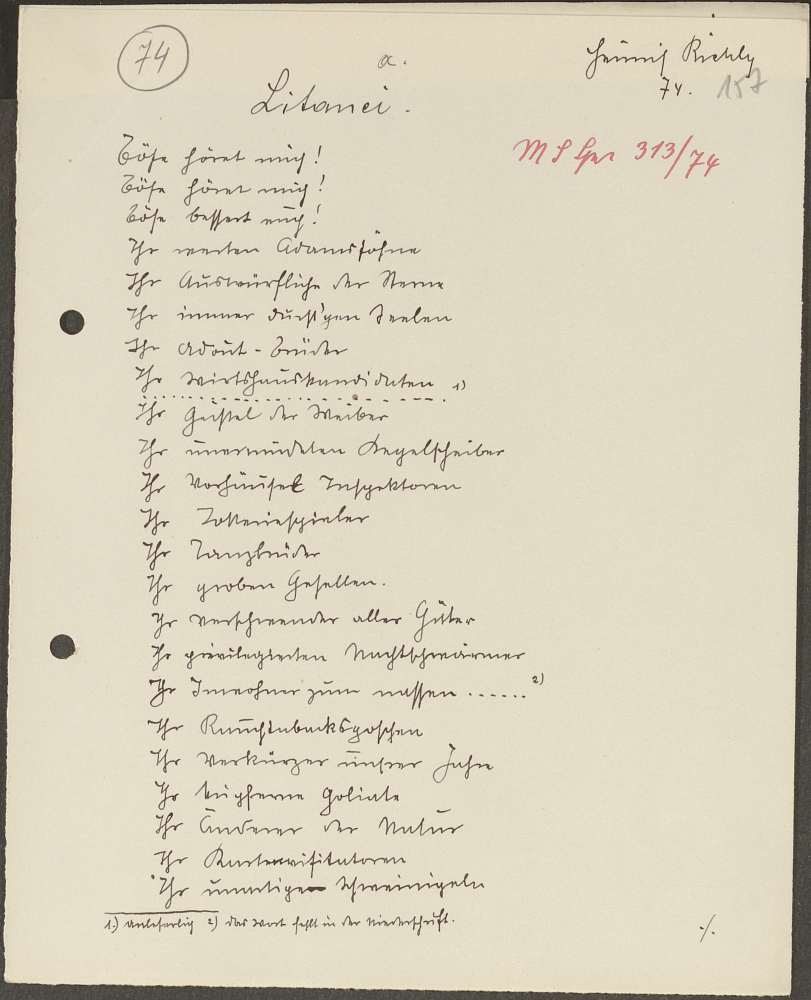 74
a.
Heinrich Richly
74.
157
Litanei.
MS Ger 313/74
Böse höret mich!
Böse höret mich!
Böse bessert euch!
Ihr Adamssöhne
Ihr Auswürfliche der Sterne
Ihr immer durst'gen Seelen
Ihr Brüder
Ihr Wirtshauskandidaten 1)
Ihr Geißel der Weiber
Ihr unermüdeten Kegelscheiber
Ihr Vorhäusel Inspektoren
Ihr Lotteriespieler
Ihr Tanzbrüder
Ihr groben Gesellen.
Ihr Verschwender aller Güter
Ihr privilegierten Nachtschwärmer
Ihr Inwohner zum nassen ......2)
Ihr Rauchtabaksgoschen
Ihr Verkürzer unsrer Jahre
Ihr kupferne Goliate
Ihr Änderer der Natur
Ihr Kartenvisitatoren
Ihr unnatigen Schweinigeln
1.) unleserlich 2) das Wort fehlt in der Niederschrift.
./.